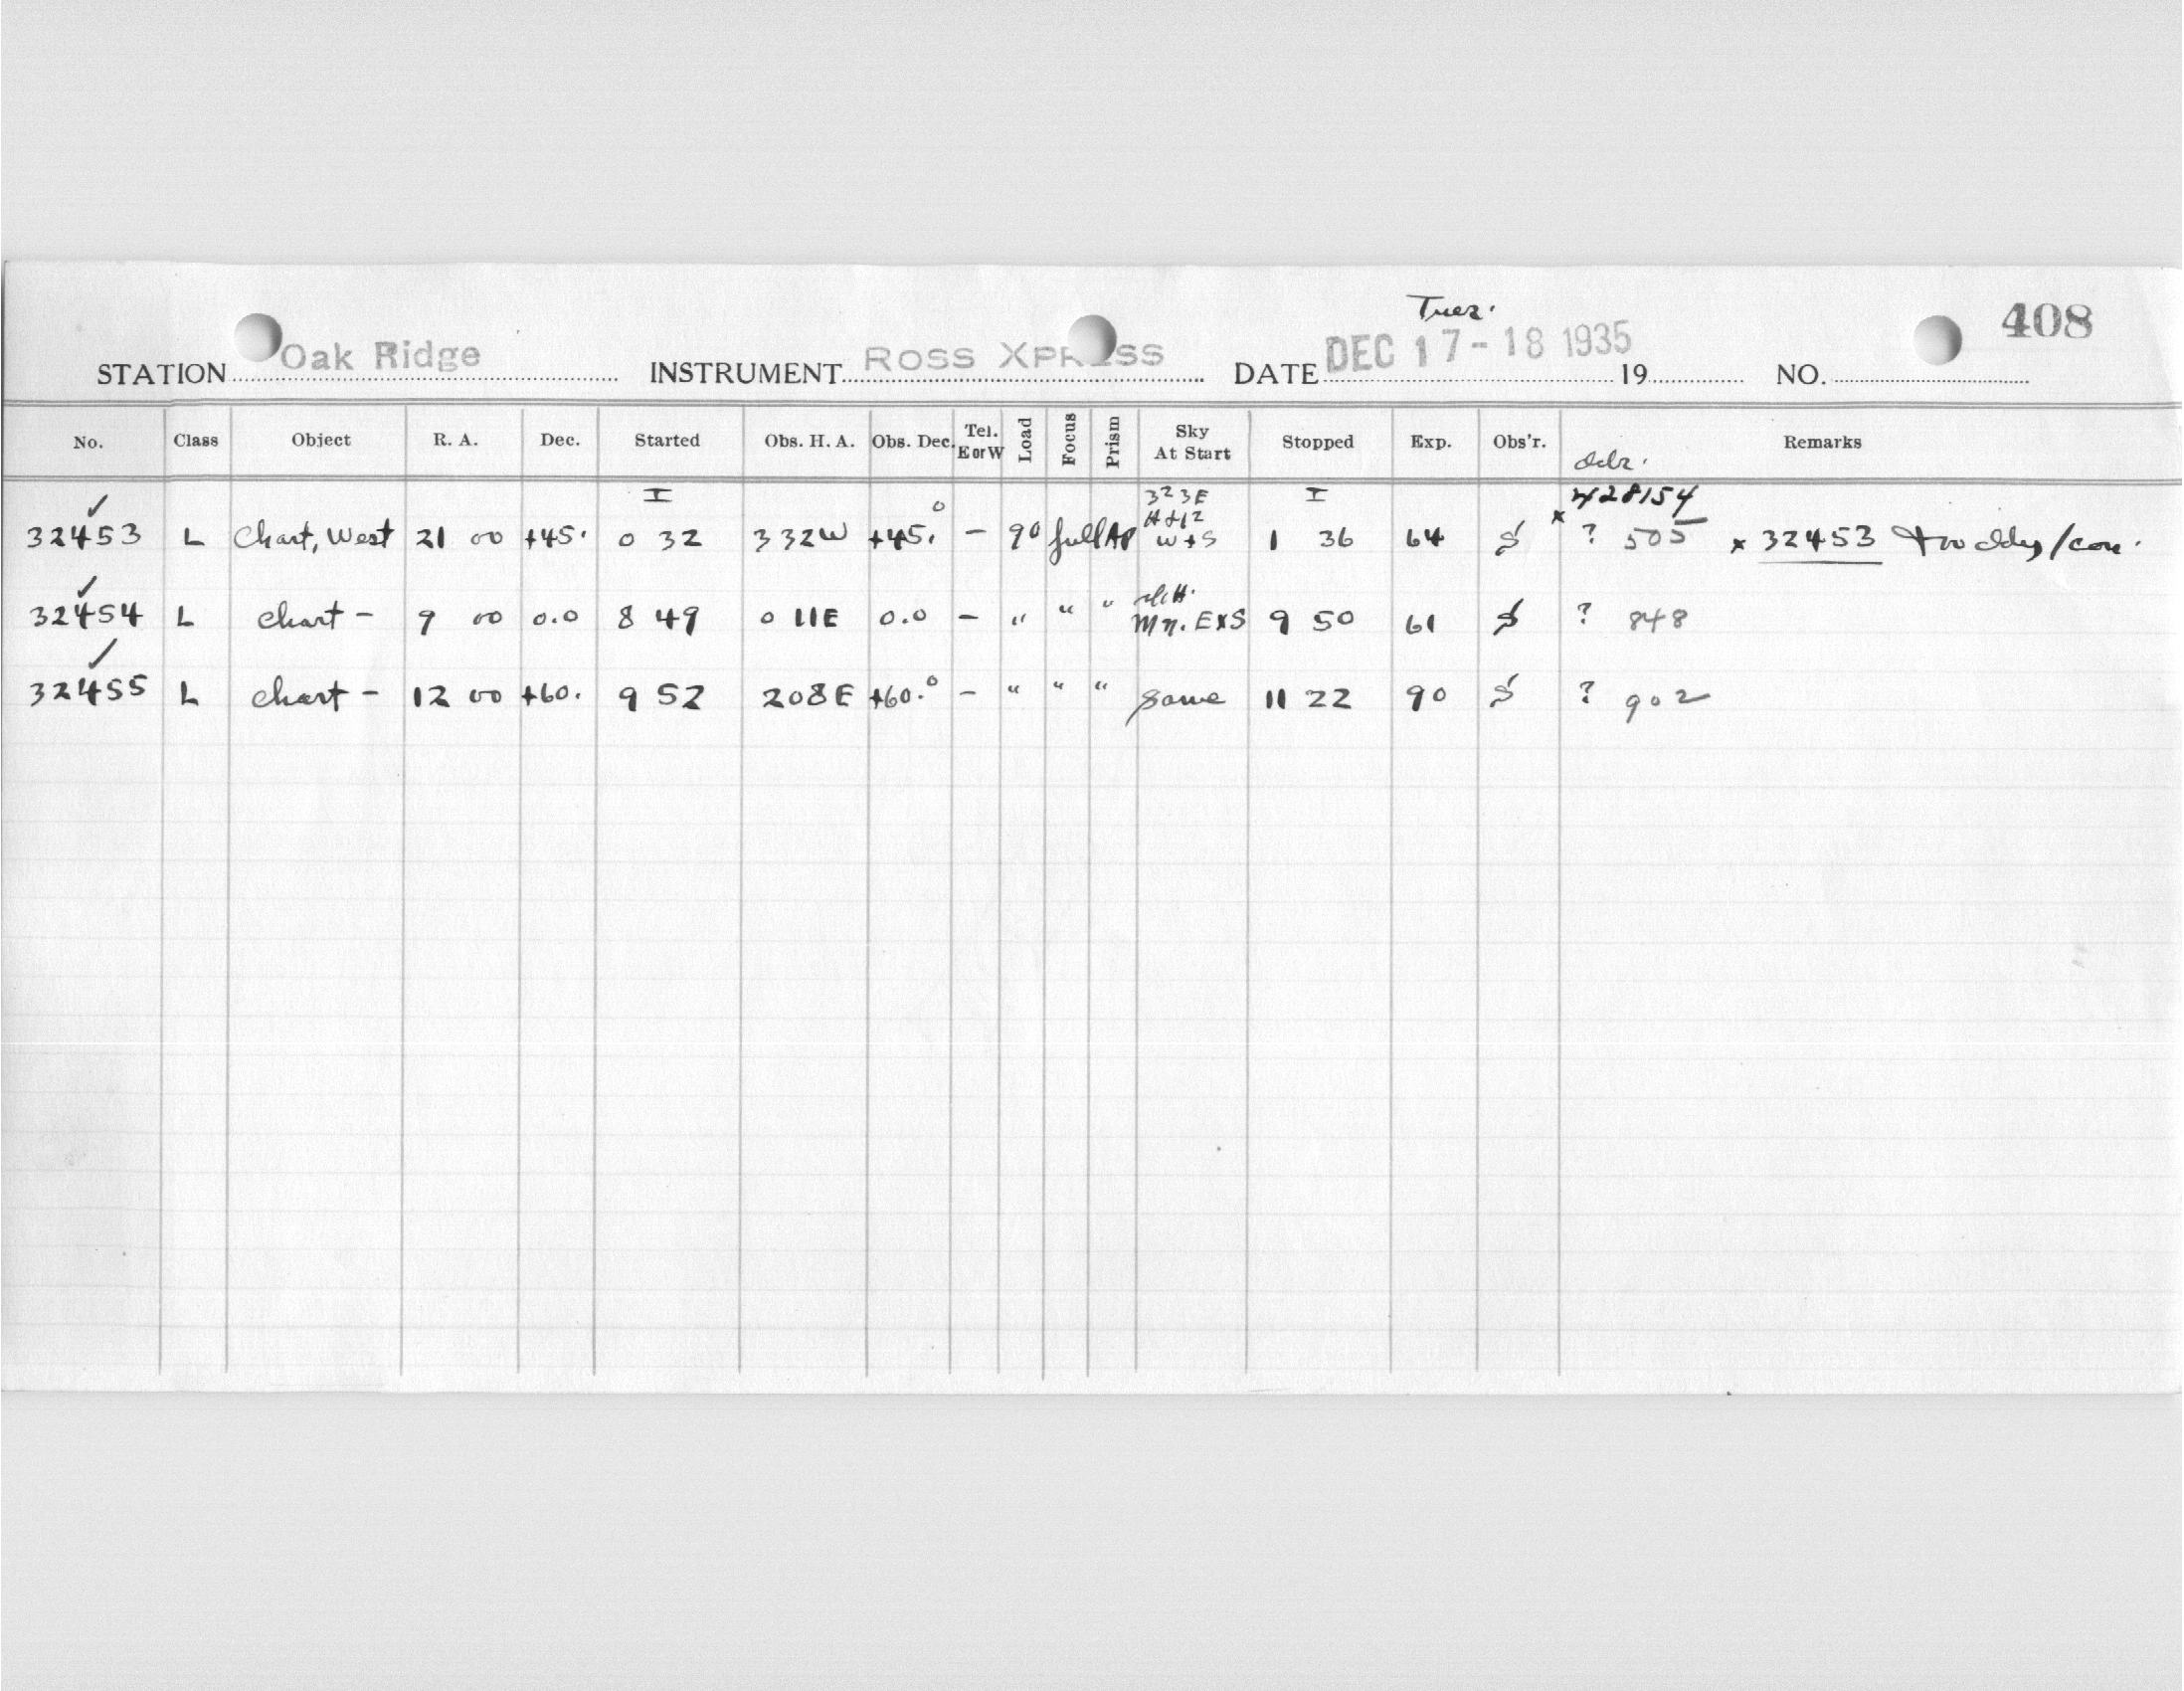 Tues.
408
STATION Oak Ridge INSTRUMENT ROSS XPRESS DATE DEC 17-18 1935 19 NO.
No. Class Object R. A. Dec. Started Obs. H. A. Obs. Dec. Tel. E or W Load Focus Prism Sky At Start Stopped Exp. Obs'r. Remarks
I 323E I x 428154
32453 L Chart, West 21 00 +45. 0 32 332W +45.° - 90 full Ap W+S 1 36 64 S ? 505 x 32453
32454 L chart - 9 00 0.0 8 49 0 11E 0.0 - " " " Mn. ExS 9 50 61 S ? 848
32455 L chart - 12 00 +60. 9 52 208E +60.° - " " " same 11 22 90 S ? 902